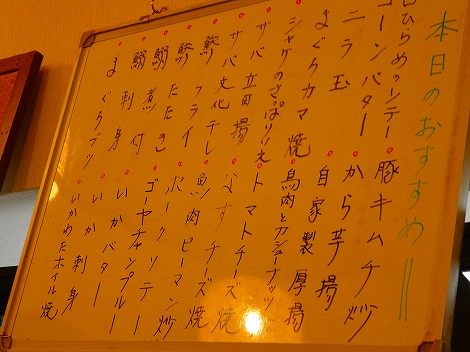 本日のおすすめ
コーンバター
ニラ玉
まぐろカマ焼
シャケのさっぱり煮
サバ立田揚
サバ文化干し
鯵フライ
鯵たたき
鰯煮付
鰯刺身
まぐろブツ
豚キムチ炒
から芋揚
自家製厚揚
鳥肉とカシューナッツ炒
トマトチーズ焼
なすチーズ焼
魚肉ピーマン炒
ポークソテー
ゴーヤチャンプルー
いかバター
いか刺身
いかめたホイル焼